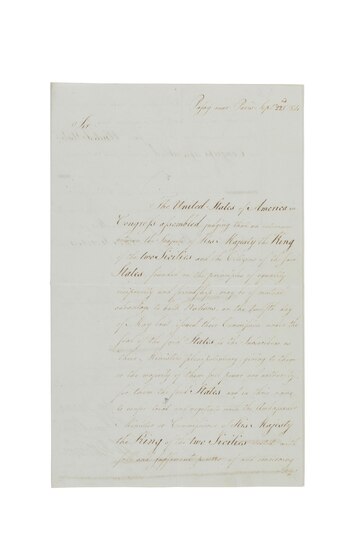 Passy near Paris Sept. 22d 1784
Sir
The United States of America in
Congress assembled judging that an intercourse
between the Subjects of His Majesty the King
of the two Sicilies and the Citizens of the said
States founded on the principles of equality
reciprocity and friendship may be of mutual
advantage to both Nations, on the twelfth day
of May last issued their Commission under the
Seal of the said States to the Subscribers as
their Ministers plenipotentiary giving to them
or the majority of them full power and authority
for them the said States and in their name
to confer treat and negotiate with the Ambassador
Minister or Commissioner of His Majesty
the King of the two Sicilies vested with
full and sufficient powers of and concerning